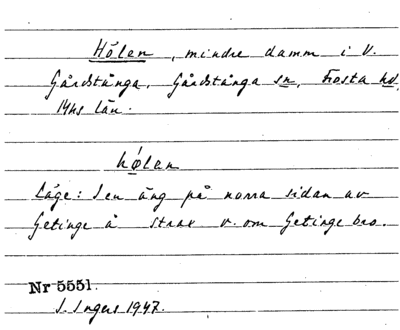 Hölen, mindre damm i V.
Gårdstånga, Gårdstånga sn, Frosta hd,
Mhs län.
hǿlen
Läge: I en äng på norra sidan av
Getinge å strax v. om Getinge bro.
Nr 5551.
I. Ingers 1947.